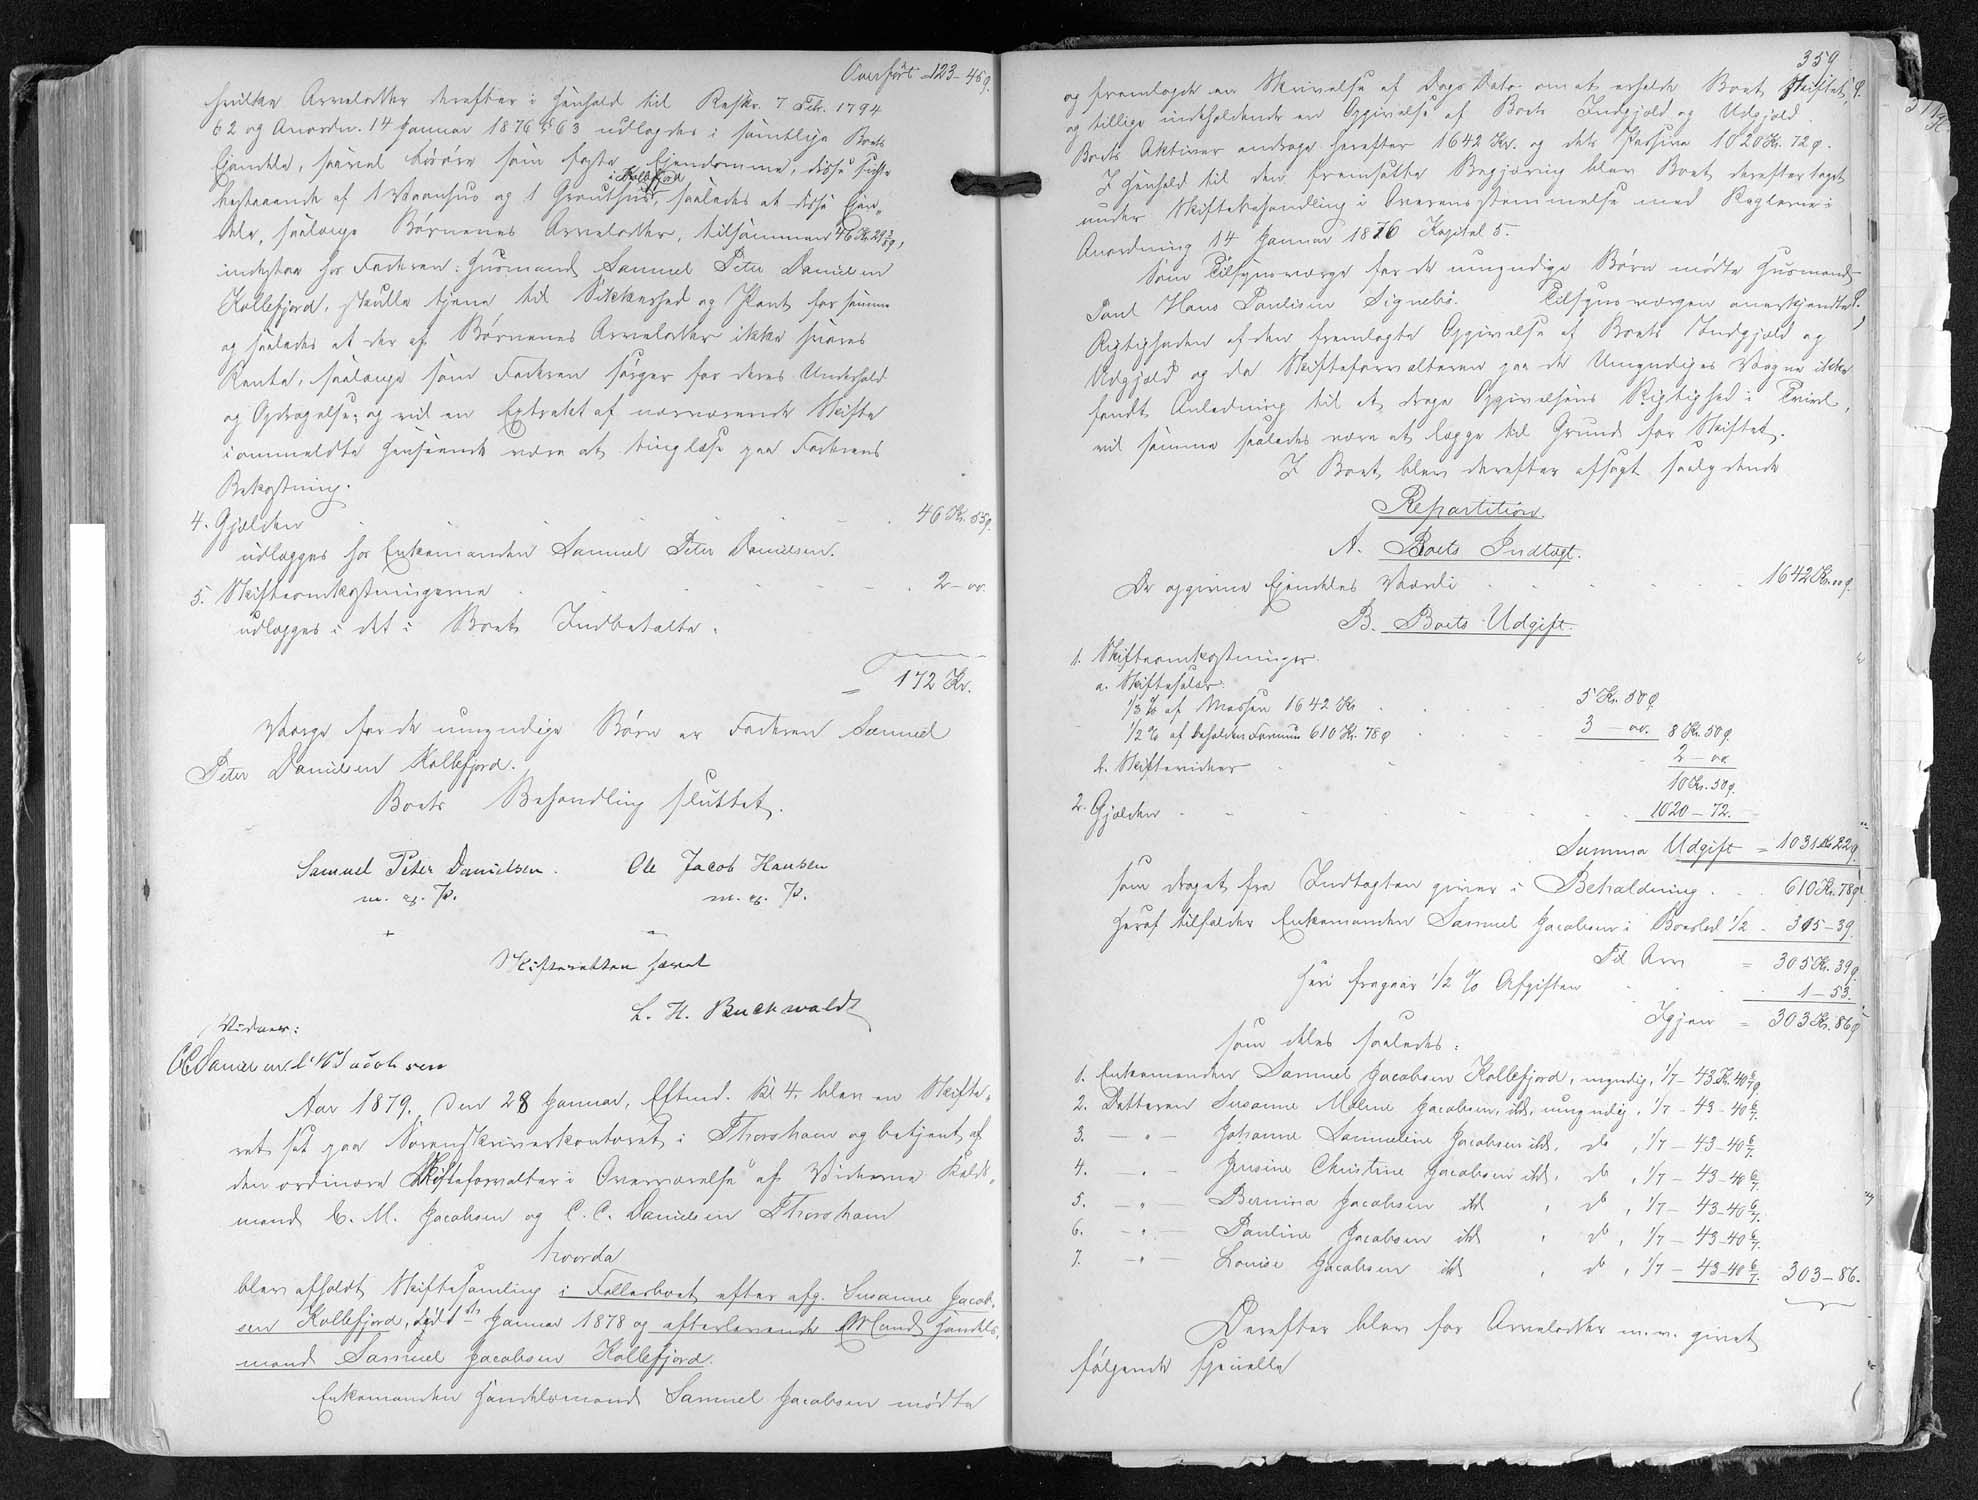 Overført = 123 - 46 Ø.
hvilke Arvelodder derefter i Henhold til Reskr. 7 Feb. 1794
§ 2 og Anordn. 14 Januar 1876 § 63 udlagdes i samtlige Boets
Ejendele, saavel Løsøre som faste Ejendomme, disse sidste
i Kollefjord
bestaaende af 1 Vaanhus og 1 Grouthus, saaledes at disse Ejen-
dele, saalænge Børnenes Arvelodder, tilsammen 46 Kr.
indestaa hos Faderen: Husmand Samuel Peter Danielsen
Kollefjord, skulle tjene til Sikkerhed og Pant for samme
og saaledes at der af Børnenes Arvelodder ikke svares
Rente, saalænge som Faderen sørger for deres Underhold
og Opdragelse; og vil en Extrakt af nærværende Skifte
i ommeldte Henseende være at tinglæse paa Faderens
Bekostning.
4. Gjælden 46 Kr. 55 Ø.
udlægges hos Enkemanden Samuel Peter Danielsen.
5. Skifteomkostningerne 2 - 00.
udlægges i det i Boet Indbetalte.
= 172 Kr.
Værge for de umyndige Børn er Faderen Samuel
Peter Danielsen Kollefjord.
Boets Behandling sluttet.
Samuel Peter Danielsen. Ole Jacob Hansen
m. e. P. m. e. P.
Skifteretten hævet
L. H. Buchwaldt
Vidner:
CC Danielsen C M Jacobsen
Aar 1879. Den 28 Januar, Eftmd. Kl 4. blev en Skifte-
ret sat paa Sorenskriverkontoret i Thorshavn og betjent af
den ordinære Skifteforvalter i Overværelse af Vidnerne
mænd C. M. Jacobsen og C. C. Danielsen Thorshavn
hvorda
blev afholdt Skiftesamling i Fællesboet efter afg. Susanne Jacob-
sen Kollefjord, død 1ste Januar 1878 og efterlevende Mand Handels-
mand Samuel Jacobsen Kollefjord.
Enkemanden Handelsmand Samuel Jacobsen mødte
359
og fremlagde en Skrivelse af Dags Dato om at erholde Boet skiftet,
og tillige indeholdende en Opgivelse af Boets Indgjæld og Udgjæld.
Boets Aktiver androge herefter 1642 Kr. og dets Passiva 1020 Kr. 72 Ø.
I Henhold til den fremsatte Begjæring blev Boet derefter taget
under Skiftebehandling i Overensstemmelse med Reglerne i
Anordning 14 Januar 1876 Kapitel 5.
Som Tilsynsværge for de umyndige Børn mødte Husmand
Poul Hans Poulsen Signebø. Tilsynsværgen anerkjendte
Rigtigheden af den fremlagte Opgivelse af Boets Indgjæld og
Udgjæld og da Skifteforvalteren paa de Umyndiges Vegne ikke
fandt Anledning til at drage Opgivelsens Rigtighed i Tvivl,
vil samme saaledes være at lægge til Grund for Skiftet.
I Boet blev derefter afsagt saalydende
Repartition.
A. Boets Indtægt.
De opgivne Ejendeles Værdi 1642 Kr. 00 Ø.
B. Boets Udgift.
1. Skifteomkostninger.
a. Skiftesalær.
1/3 % af Massen 1642 Kr. 5 Kr. 50 Ø
1/2 % af beholden Formue 610 Kr. 78 Ø 3 - 00. 8 Kr. 50 Ø.
b. Skiftevidner 2 - 00
10 Kr. 50 Ø.
2. Gjælden 1020 - 72.
Summa Udgift = 1031 Kr. 22 Ø.
som draget fra Indtægten giver i Beholdning 610 Kr. 78 Ø.
Heraf tilfalder Enkemanden Samuel Jacobsen i Boeslod 1/2 - 305 - 39.
Til Arv = 305 Kr. 39 Ø.
Heri fragaar 1/2 % Afgiften 1 - 53.
Igjen = 303 Kr. 86 Ø
som deles saaledes:
1. Enkemanden Samuel Jacobsen Kollefjord, myndig, 1/7 - 43 Kr. 40 6/7 Ø.
2. Datteren Susanne Malene Jacobsen, ibd, umyndig, 1/7 - 43 - 40 6/7.
3. - " - Johanne Sammeline Jacobsen ibd, do, 1/7 - 43 - 40 6/7.
4. - " - Jensine Christine Jacobsen ibd, do, 1/7 - 43 - 40 6/7.
5. - " - Bernina Jacobsen ibd, do, 1/7 - 43 - 40 6/7.
6. - " - Pauline Jacobsen ibd, do, 1/7 - 43 - 40 6/7.
7. - " - Louise Jacobsen ibd, do, 1/7 - 43 - 40 6/7. 303 - 86.
Derefter blev for Arvelodder m.v. givet
følgende specielle